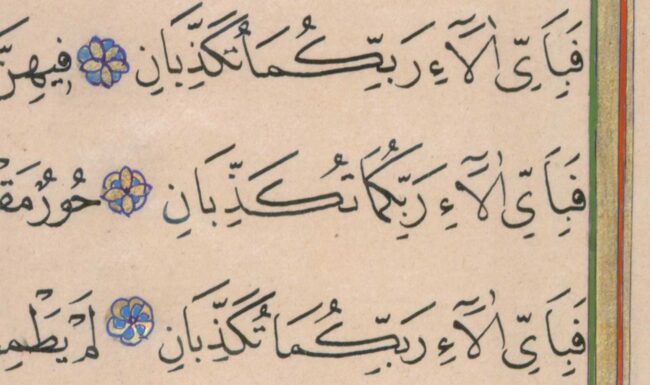 فَبِاَىِّ اٰلَٓاءِ رَبِّكُمَا تُكَذِّبَانِ فٖيهِنَّ
فَبِاَىِّ اٰلَٓاءِ رَبِّكُمَا تُكَذِّبَانِ حُورٌ
فَبِاَىِّ اٰلَٓاءِ رَبِّكُمَا تُكَذِّبَانِ لَمْ